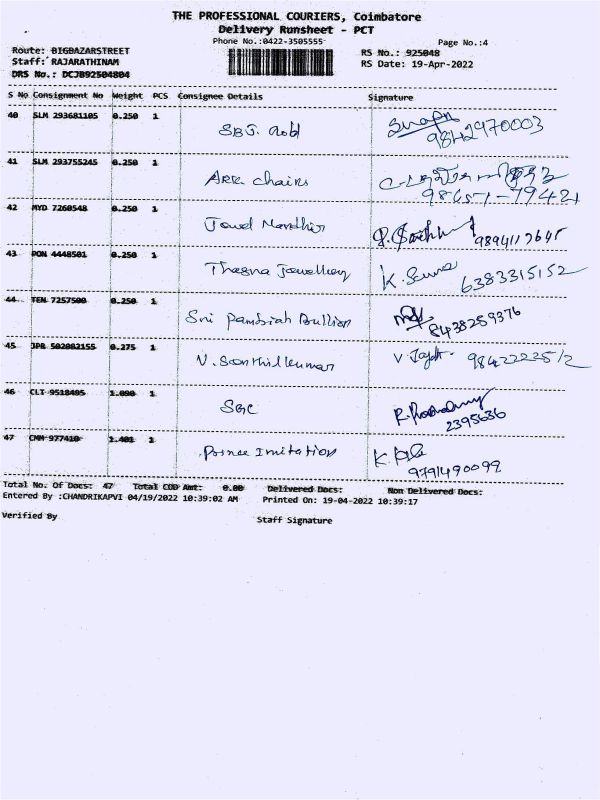 THE PROFESSIONAL COURIERS, Coimbatore
Delivery Runsheet - PCT
Phone No.:0422-3505555
Page No.:4
Route: BIGBAZARSTREET
RS No.: 925048
Staff: RAJARATHINAM
RS Date: 19-Apr-2022
DRS No.: DCJB92504804
S No Consignment No Weight PCS Consignee Details Signature
40 SLM 293681105 0.250 1 SBJ. Gold
9842970003
41 SLM 293755245 0.250 1 ARR chairs
98651-79421
42 MYD 7260548 0.250 1 Jewel Mandhir
9894117645
43 PON 4448501 0.250 1 Thasna Jewellery K.
6383315152
44 TEN 7257500 0.250 1 Sri Pambiah Bullion
8438259376
45 JPR 502082155 0.275 1 N. Senthilkumar V
9842222512
46 CLT 9518405 1.090 1 SGC
2395636
47 CMM 977410 1.401 1 Prince Imitation K.
9791490099
Total No. Of Docs: 47 Total COD Amt: 0.00 Delivered Docs: Non Delivered Docs:
Entered By :CHANDRIKAPVI 04/19/2022 10:39:02 AM Printed On: 19-04-2022 10:39:17
Verified By
Staff Signature